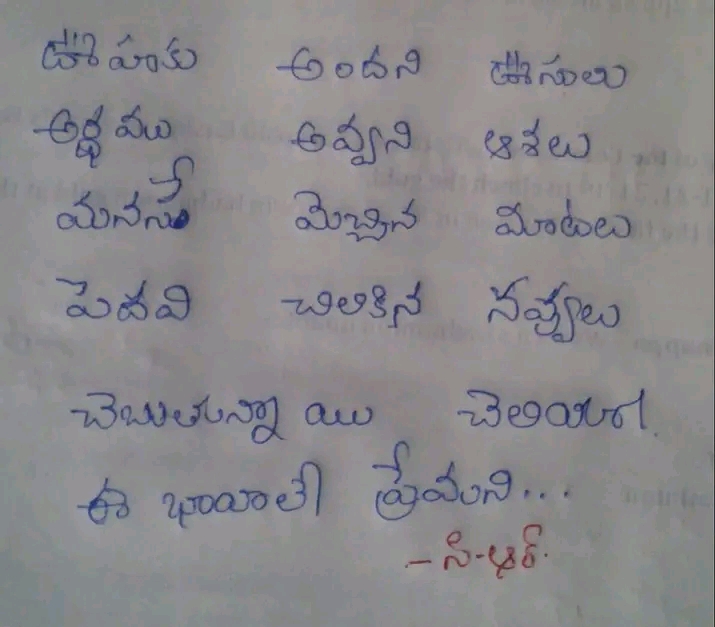 ఊహకు అందని ఊసులు
అర్థము అవ్వని ఆశలు
మనసే మెచ్చిన మాటలు
పెదవి చిలికిన నవ్వులు
చెబుతున్నాయి చెలియా!
ఈ భాషాలే ప్రేమని...
- సి-ఆర్.